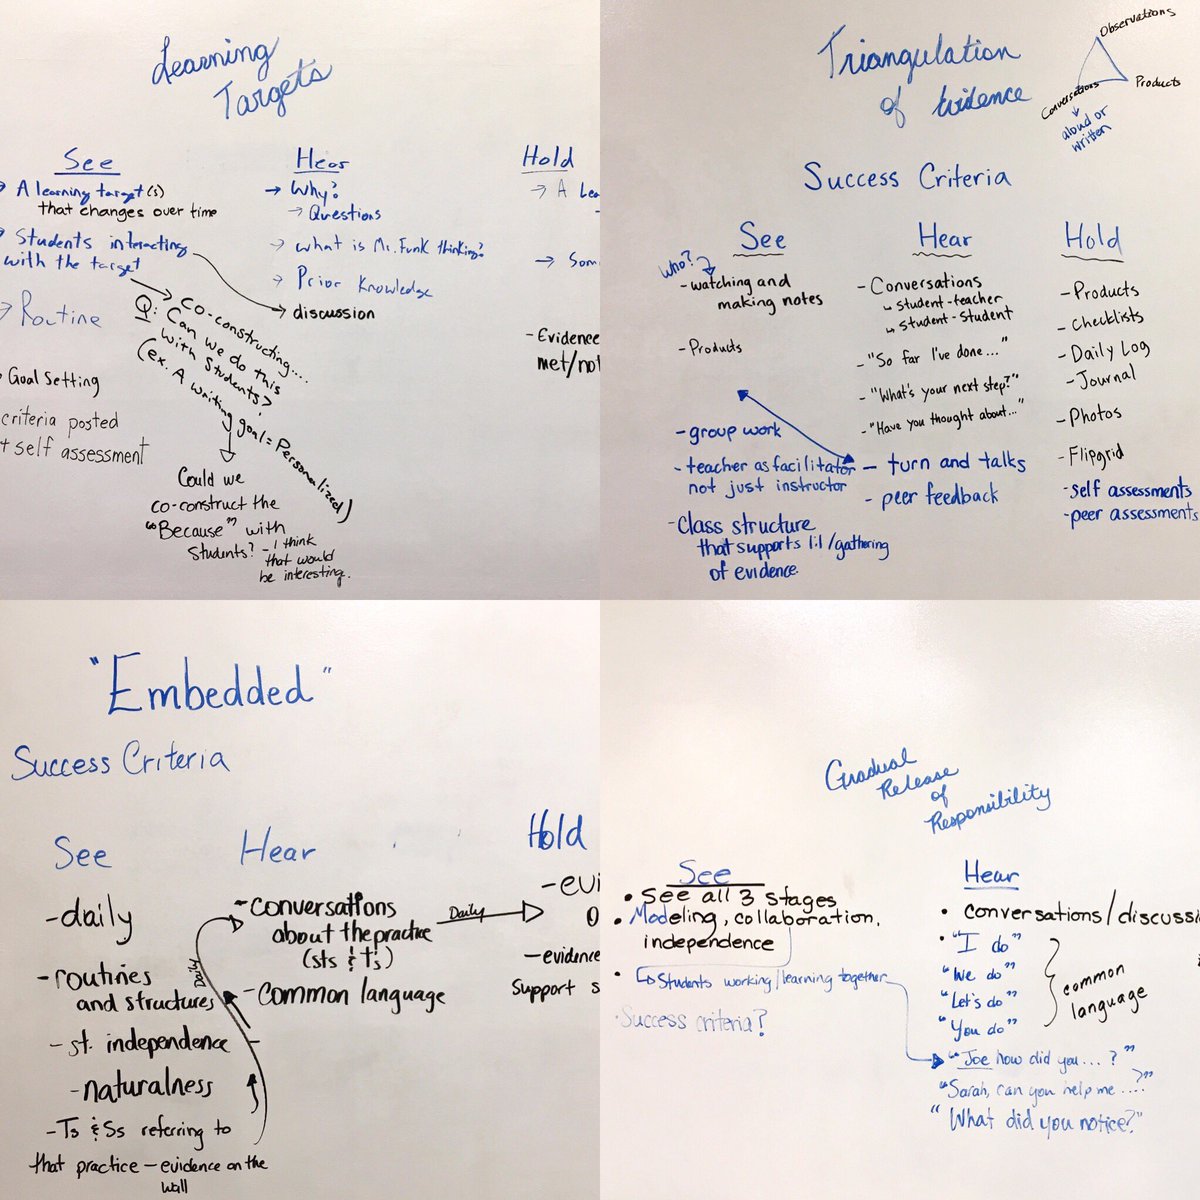 Learning
Targets
See
→ A learning target(s)
that changes over time
→ Students interacting
with the target
→ Routine
Goal Setting
criteria posted
+ self assessment
co-constructing....
Q: Can we do this
with students?
(ex. A writing goal = Personalized)
Could we
co-construct the
"Because" with
students? - I think
that would
be interesting.
Hear
→ Why?
→ Questions
→ What is Mr. Funk thinking?
→ Prior Knowledge
discussion
Hold
→ A Lea
→ Som
- Evidence
met/not
Triangulation
of Evidence
Observations
Conversations
Products
aloud or
written
Success Criteria
See
Who?
- watching and
making notes
- Products
- group work
- teacher as facilitator
not just instructor
- Class structure
that supports /gathering
of evidence.
Hear
- Conversations
↳ student-teacher
↳ student-student
- "So far I've done..."
- "What's your next step?"
- "Have you thought about..."
- turn and talks
- peer feedback
Hold
- Products
- Checklists
- Daily Log
- Journal
- Photos
- Flipgrid
- self assessments
- peer assessments
"Embedded"
Success Criteria
See
- daily
- routines
and structures
- st. independence
- naturalness
- Ts & Ss referring to
that practice - evidence on the
wall
Daily
Hear
- conversations
about the practice
(sts & t's)
- Common language
Daily
Hold
- evi
- evidence
support s
Gradual
Release
of
Responsibility
See
• See all 3 stages
• Modeling, collaboration,
independence
• ↳ Students working/learning together
• Success criteria?
Hear
• conversations/discussi
• "I do"
"We do"
"Let's do"
"You do"
common
language
"Joe how did you...?"
"Sarah, can you help me...?"
"What did you notice?"